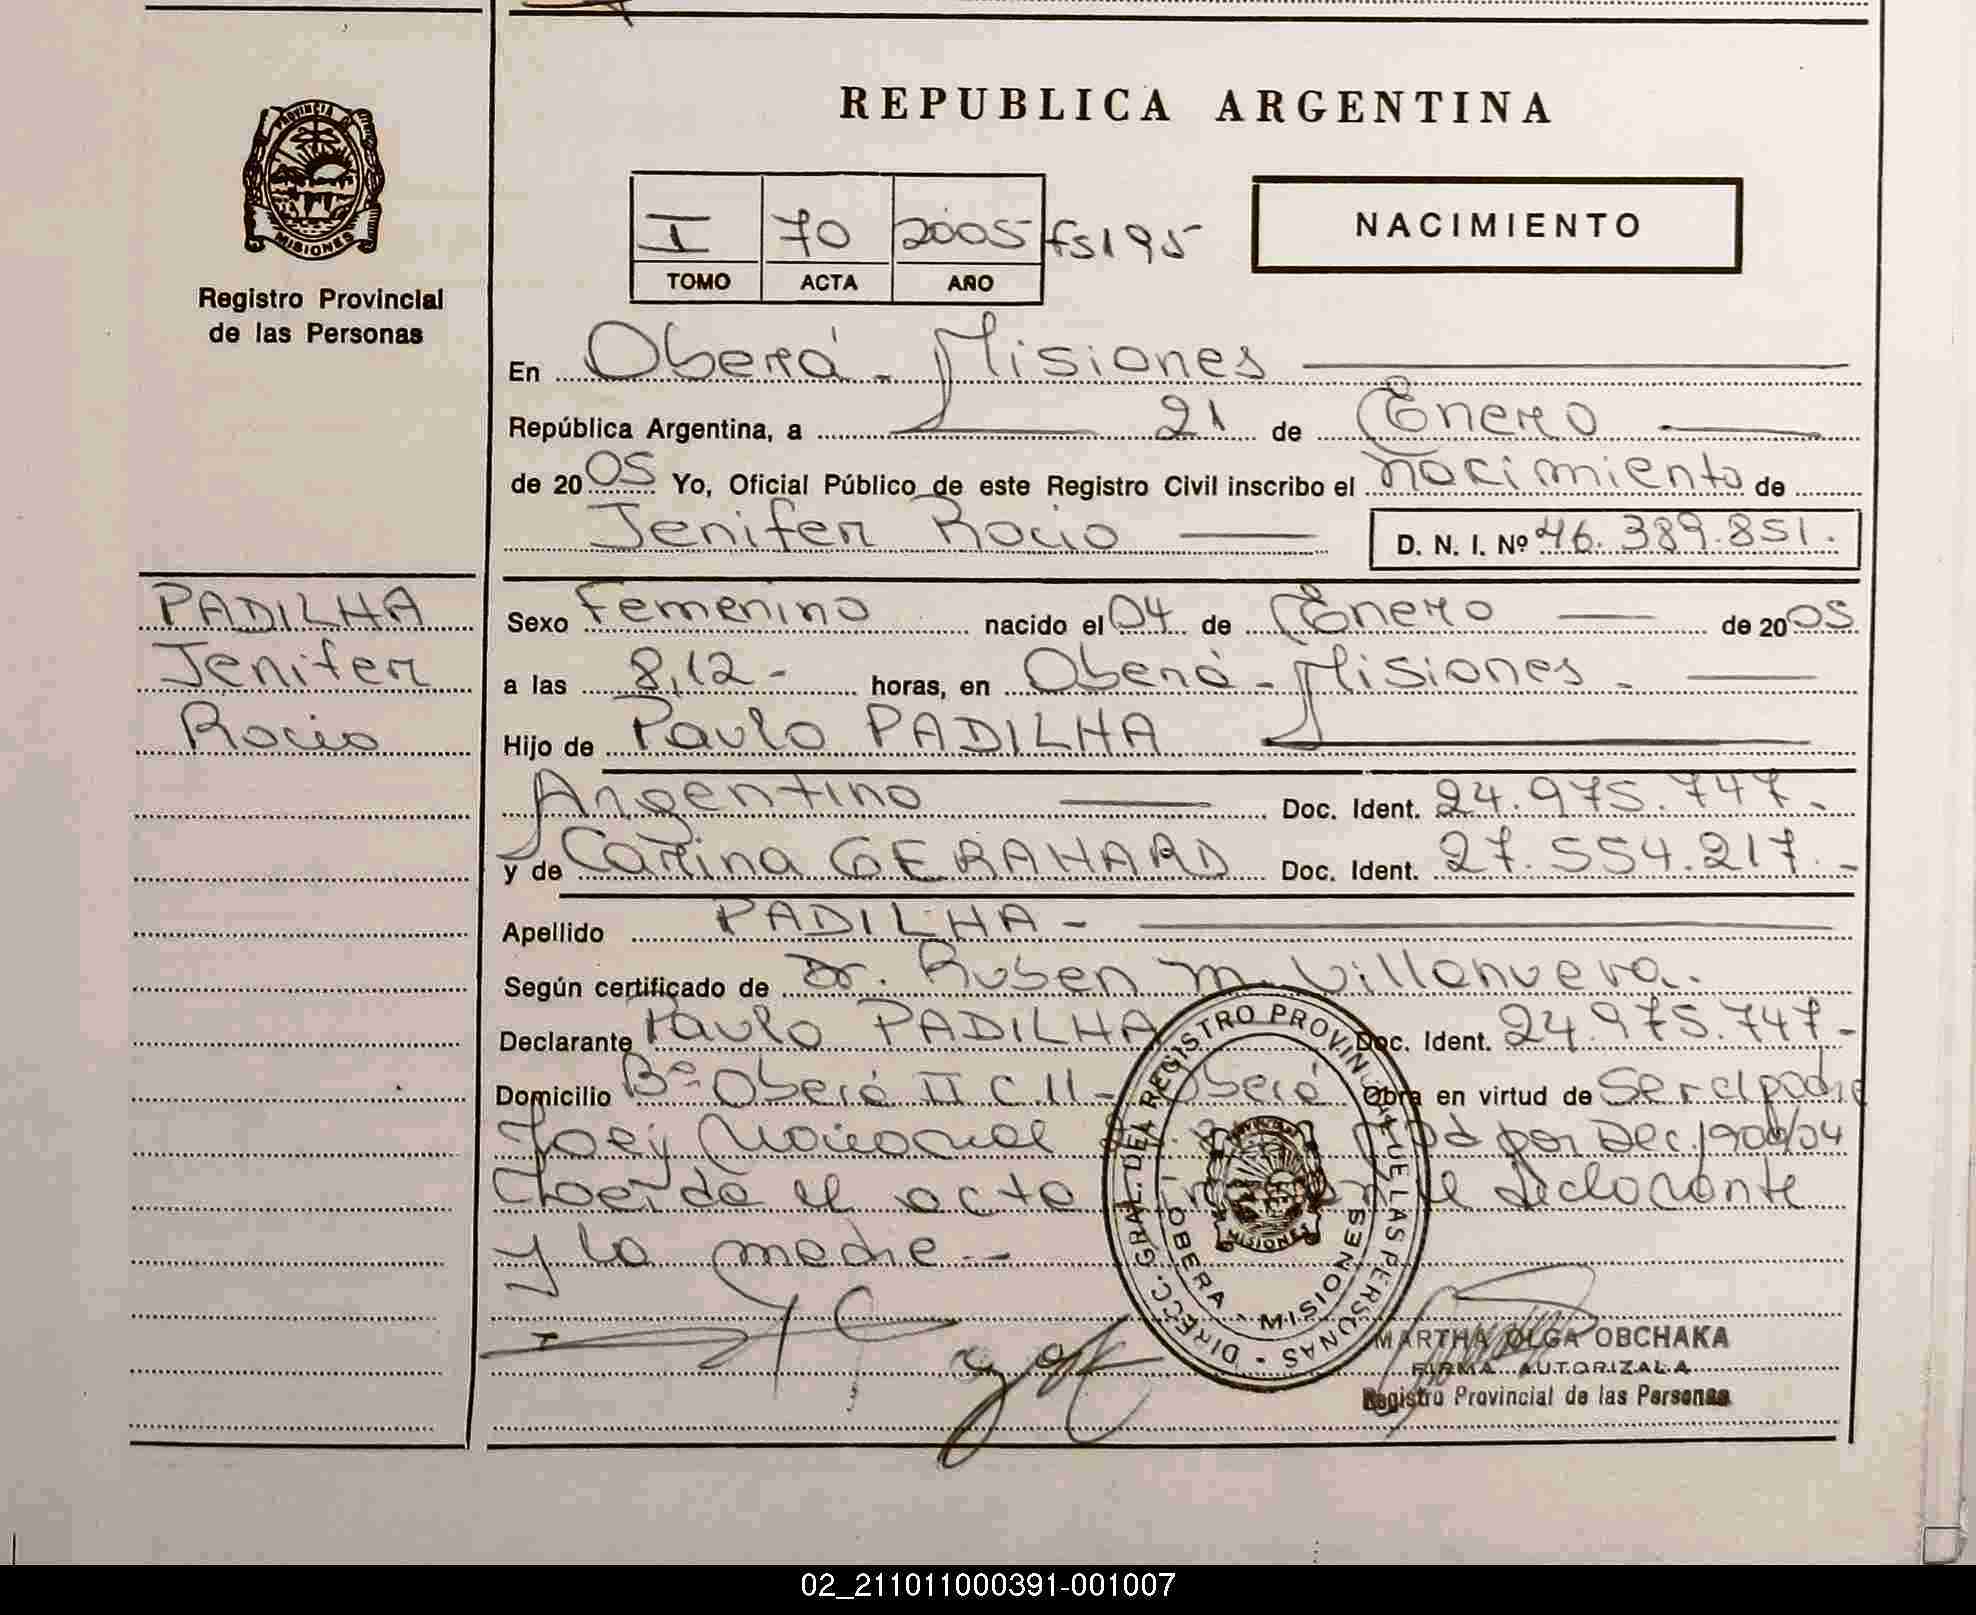 REPUBLICA ARGENTINA
PROVINCIA DE
MISIONES
Registro Provincial
de las Personas
I 70 2005 fs195
TOMO ACTA AÑO
NACIMIENTO
En Oberá - Misiones
República Argentina, a 21 de Enero
de 2005 Yo, Oficial Público de este Registro Civil inscribo el nacimiento de
Jenifer Rocio D. N. I. Nº 46.389.851.
PADILHA
Jenifer
Rocio
Sexo Femenino nacido el 04 de Enero de 2005
a las 8,12- horas, en Oberá - Misiones -
Hijo de Paulo PADILHA
Argentino Doc. Ident. 24.975.747.-
y de Carina GERAHARD Doc. Ident. 27.554.217.-
Apellido PADILHA -
Según certificado de Dr. Ruben M. Villanueva.
Declarante Paulo PADILHA Doc. Ident. 24.975.747-
Domicilio Bº Oberá II C 11 - Oberá Obra en virtud de ser el padre
por Dec. 1900/04
el acto el declarante
y la madre.-
DIRECC. GRAL. DEL REGISTRO PROVINCIAL DE LAS PERSONAS
OBERA - MISIONES
MISIONES
MARTHA OLGA OBCHAKA
FIRMA AUTORIZADA
Registro Provincial de las Personas
02_211011000391-001007